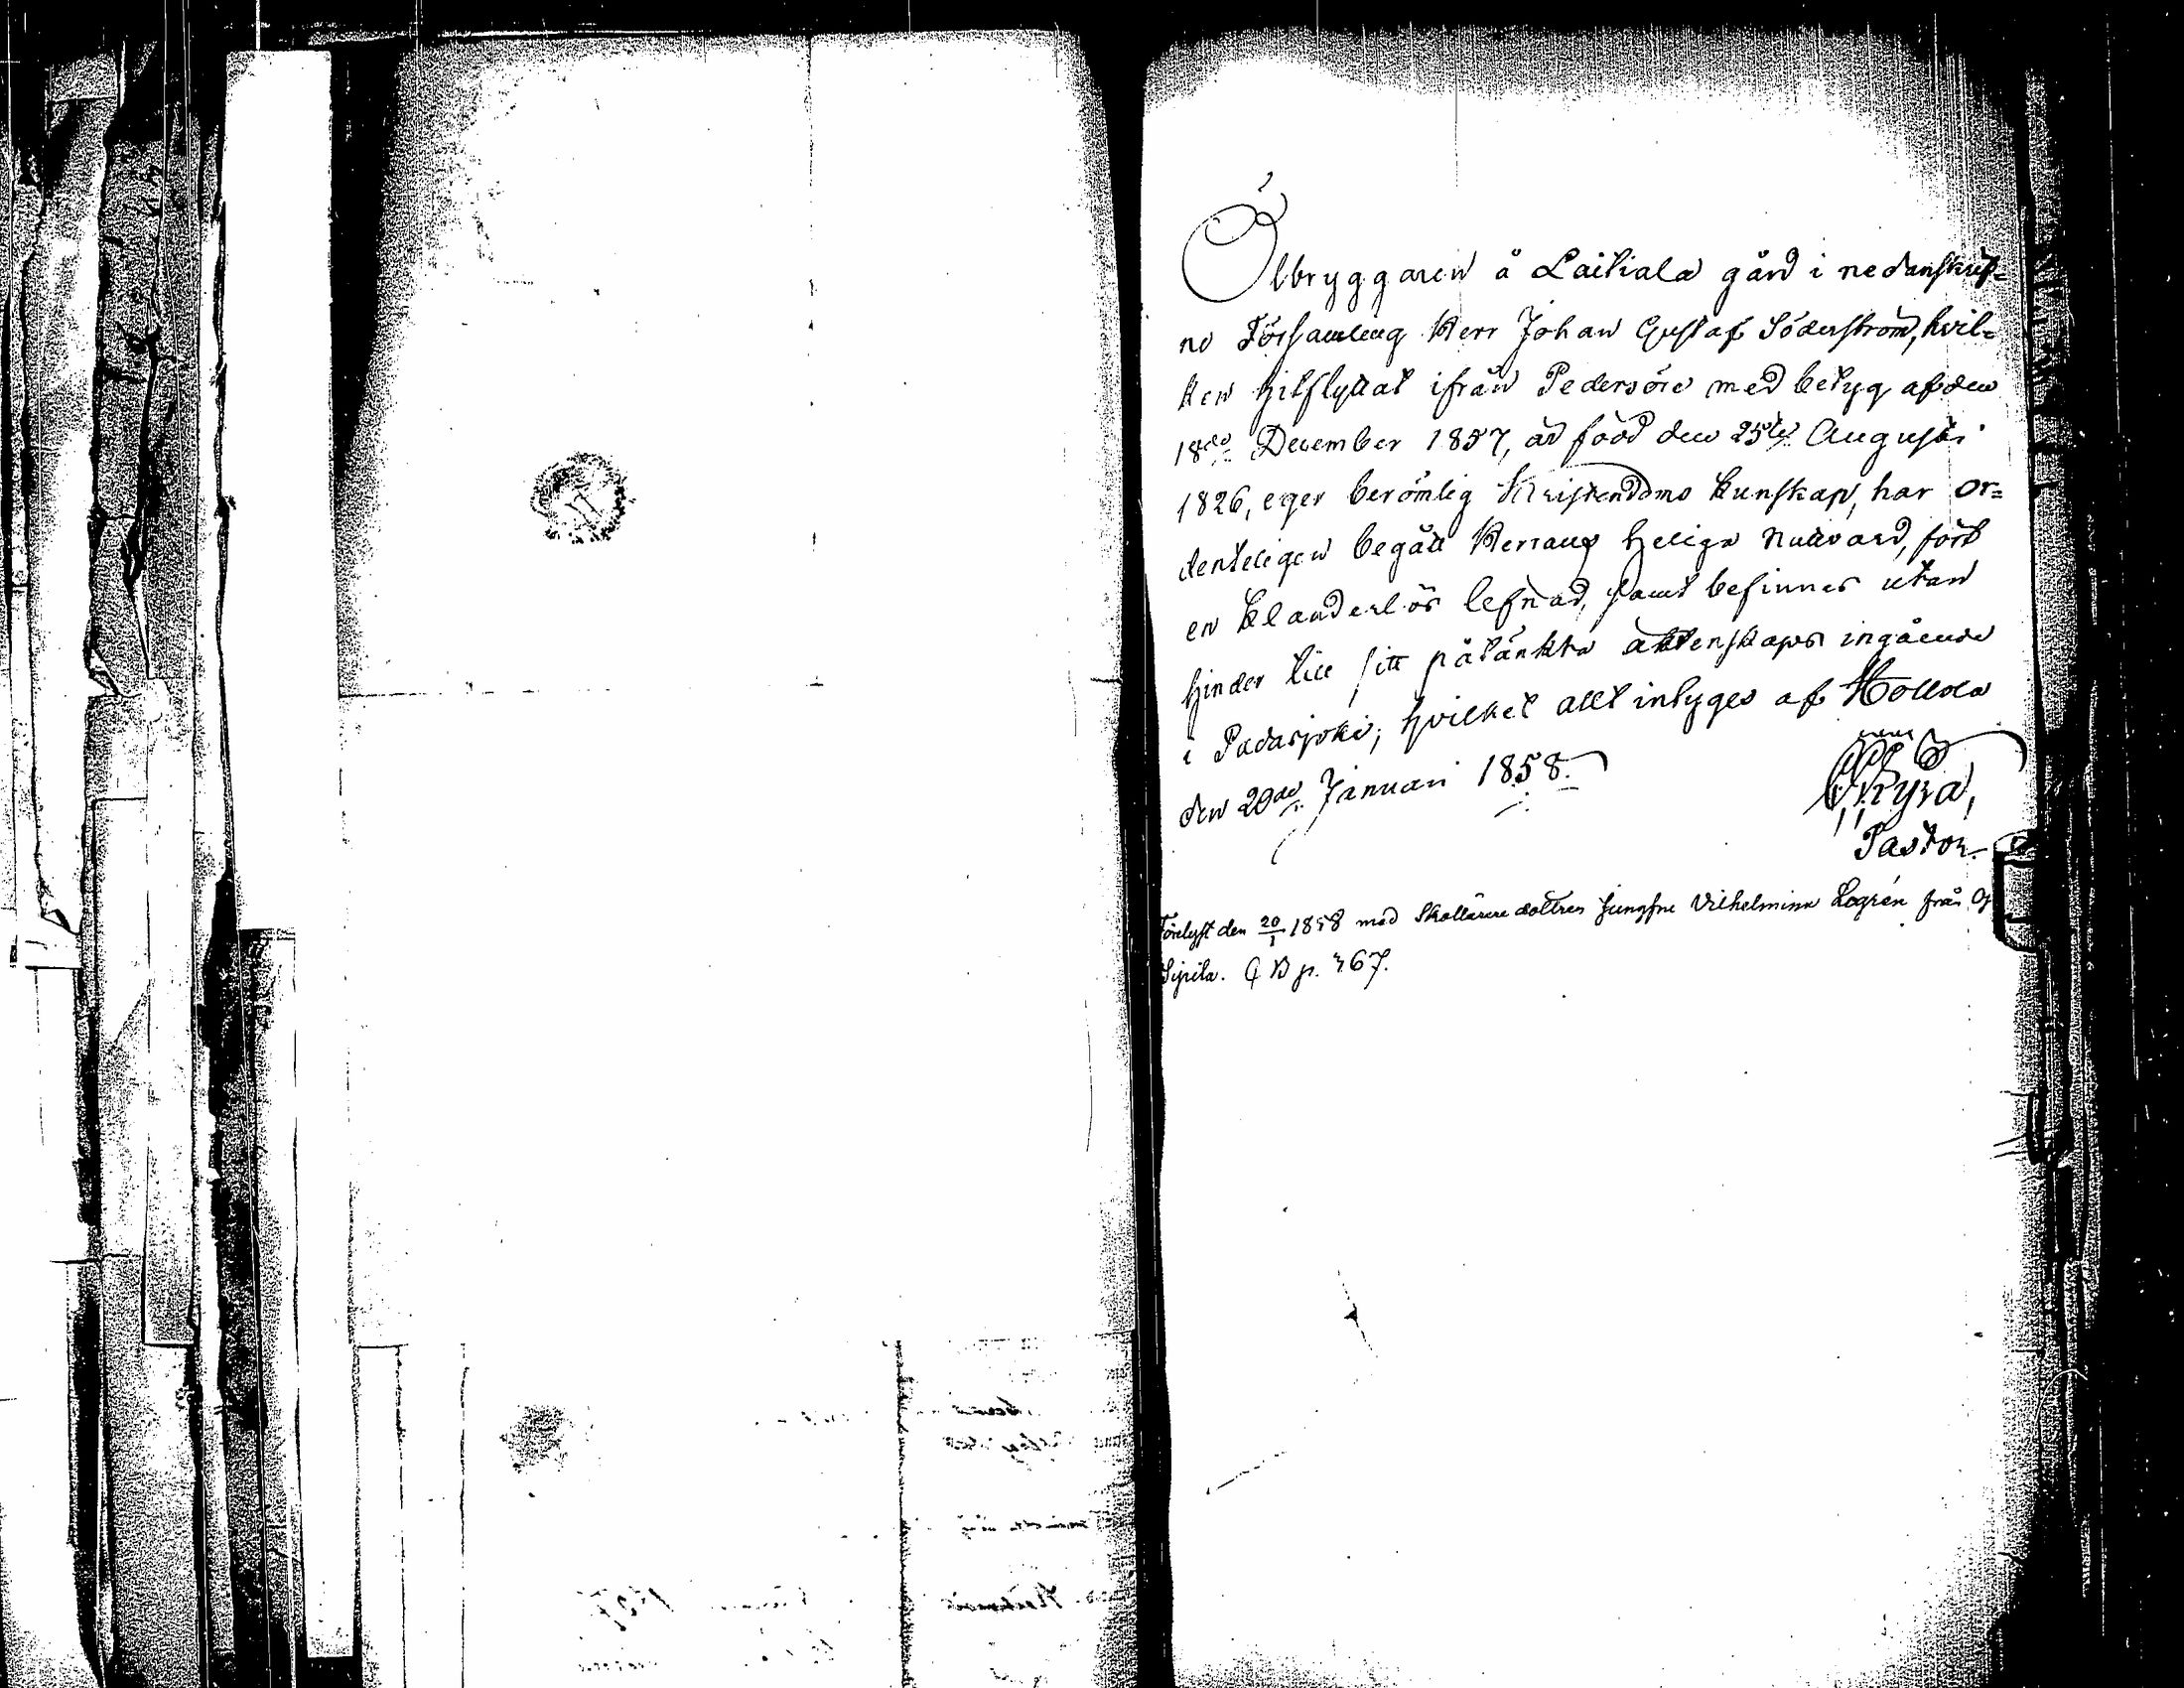 Ölbryggaren å Laitiala gård i nedanskrif=
ne Församling Herr Johan Gustaf Söderström, hvil=
ken hitflyttat ifrån Pedersöre med betyg af den
18de December 1857, är född den 25te Augusti
1826, eger berömlig Kristendoms kunskap, har or=
denteligen begått Herrans Heliga Nattvard, fört
en klanderlös lefnad, samt befinnes utan
hinder till sitt påtänkta äktenskaps ingående
i Padasjoki; hvilket allt intygas af Hollola
den 20de Januari 1858.
Pastor.
Förelyst den 20/1 1858 med Skollärare dottren Jungfru Vilhelmina Logrén från
Sipila. p. 467.